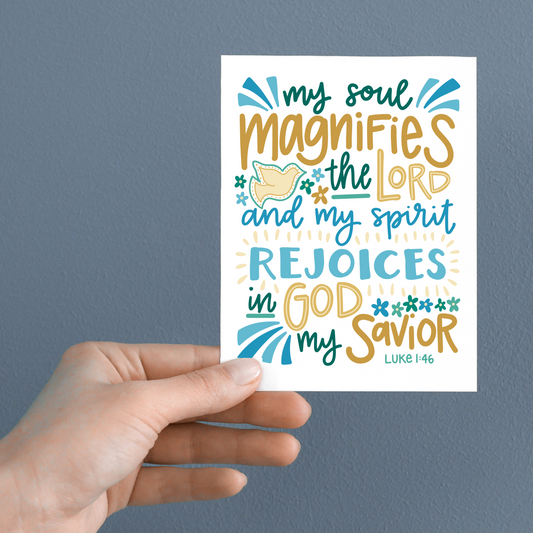 my soul
magnifies
the LORD
and my spirit
REJOICES
in GOD
my Savior
LUKE 1:46